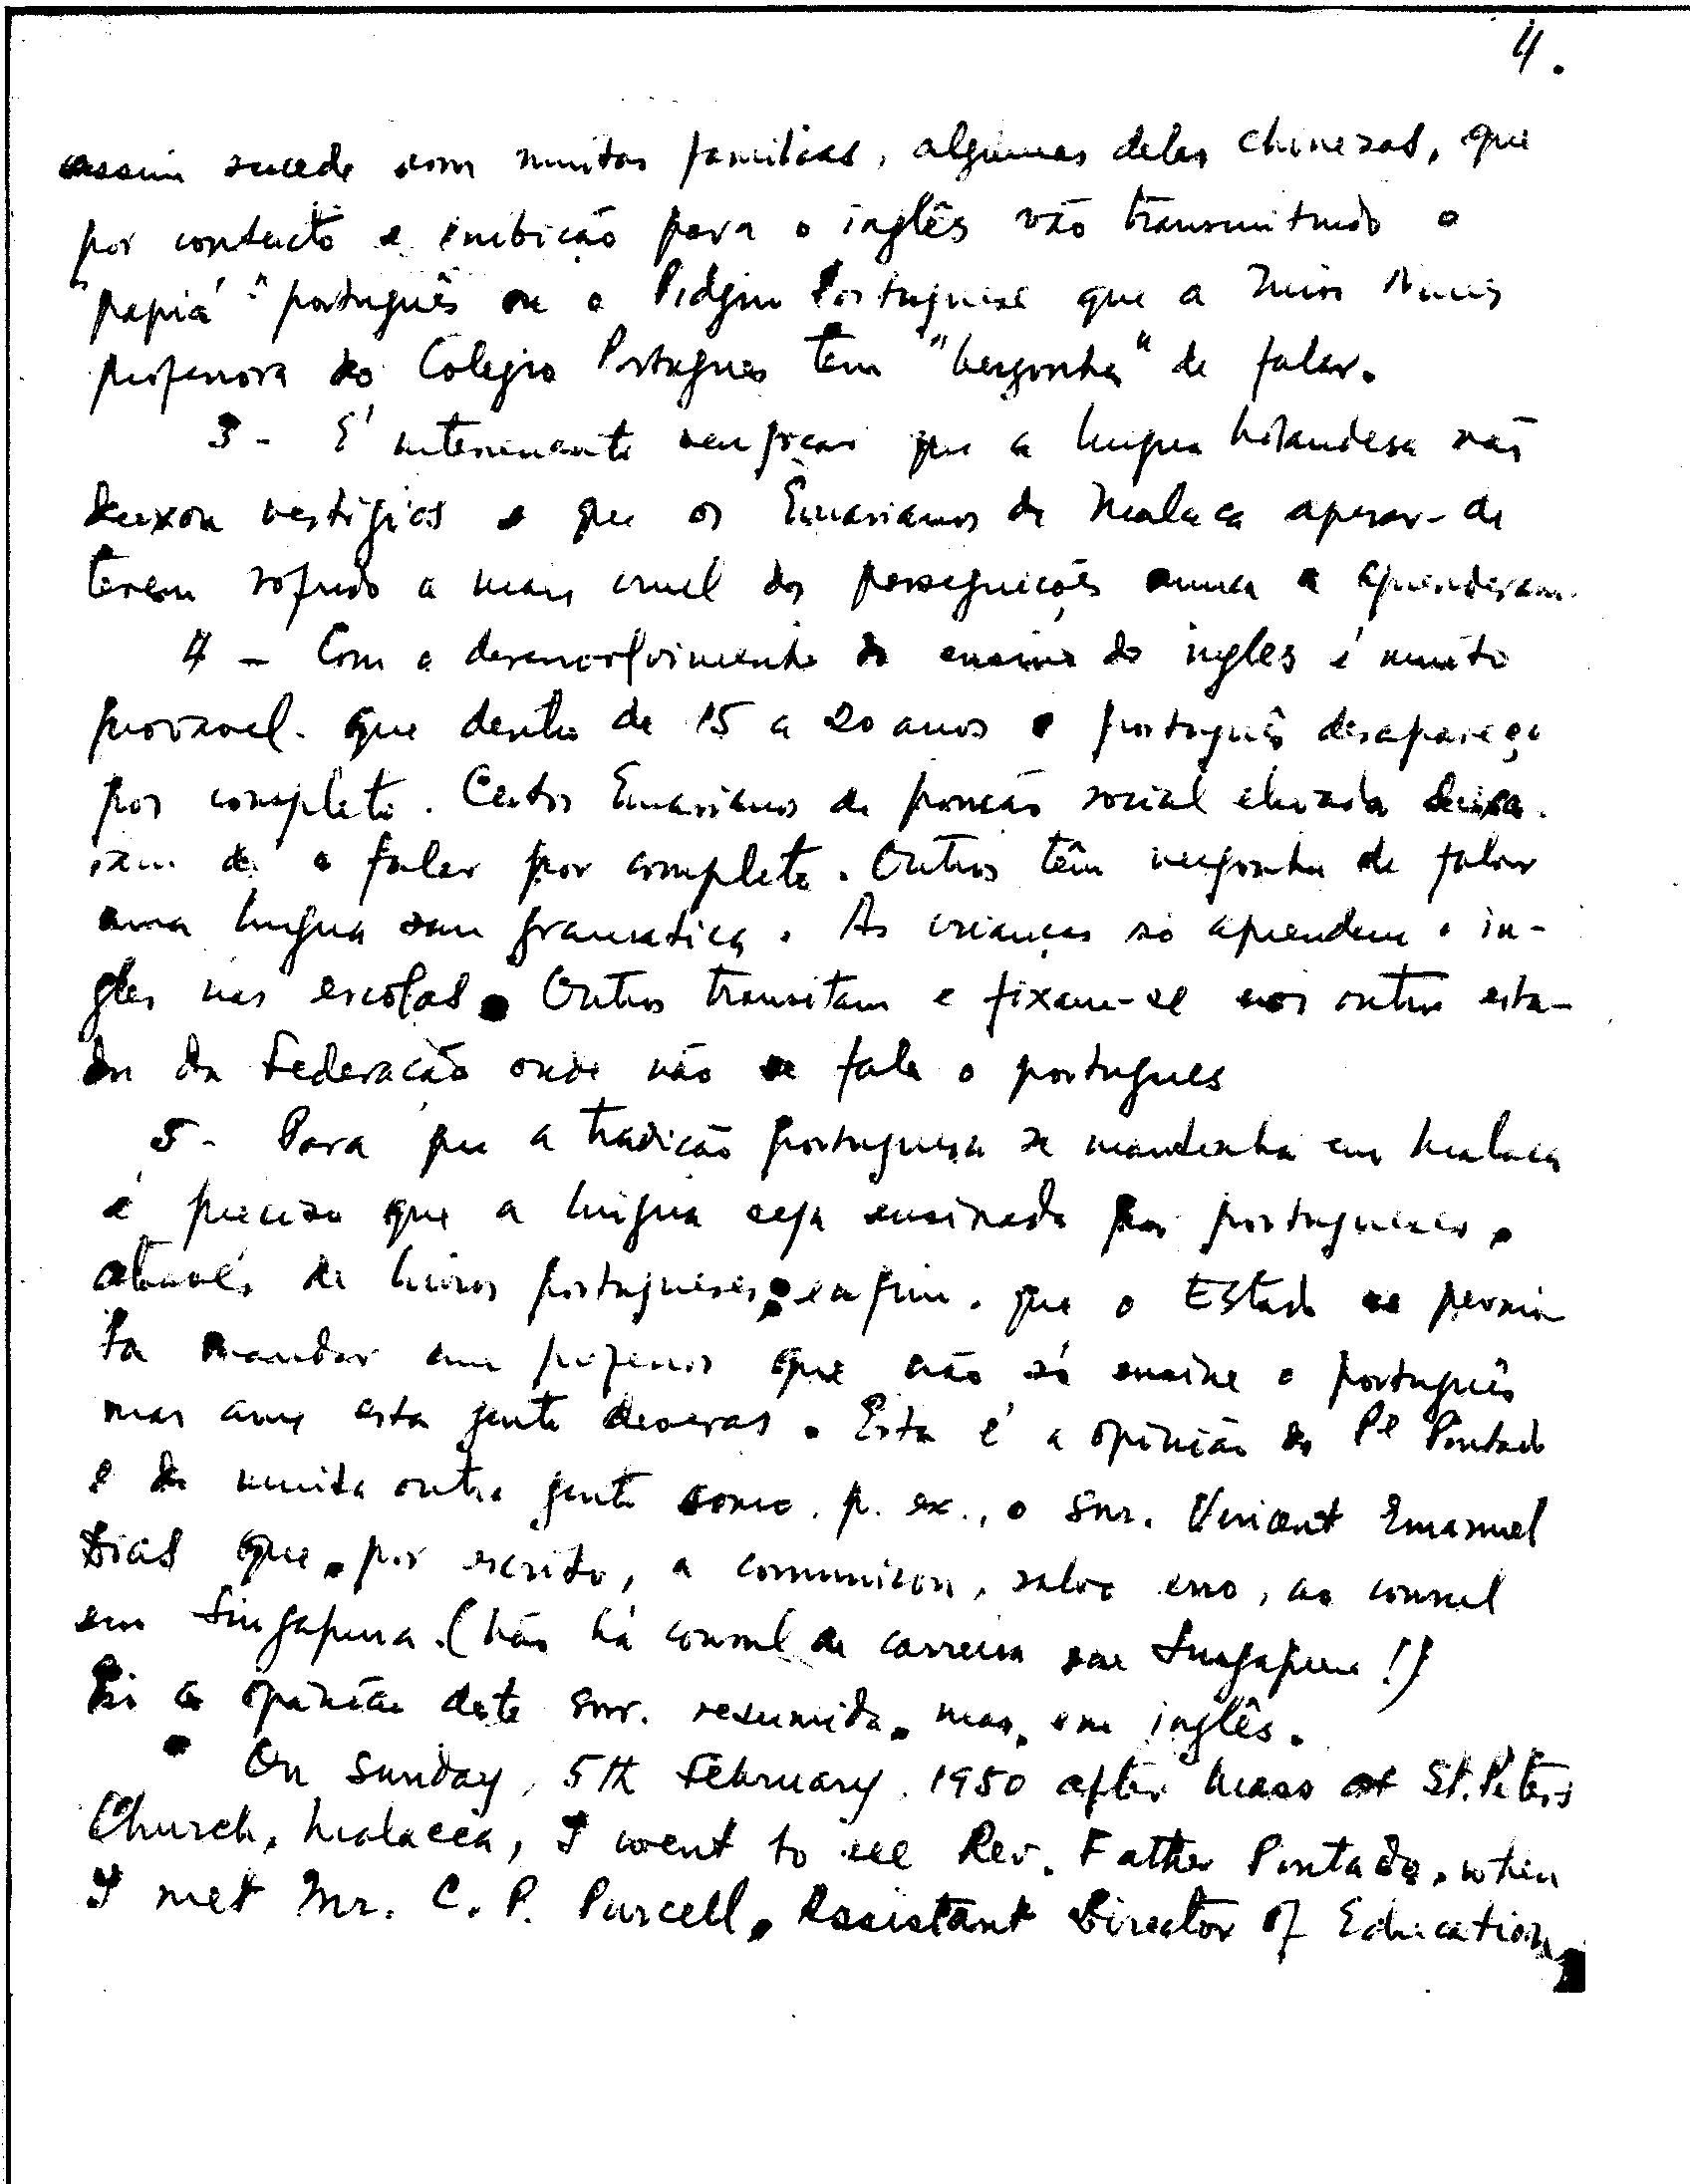 4.
assim sucede com muitas familias, algumas delas chinezas, que
por contacto e inibição para o inglês vão transmitindo o
"papiá" português ou o Pidgin Portuguese que a Miss Nunes
professora do Colegio Portugues tem "bergonha" de falar.
3 - É interessante verificar que a lingua holandesa não
deixou vestígios e que os Eurasianos de Malaca apesar-de
terem sofrido a mais cruel das perseguições nunca a aprenderam.
4 - Com o desenvolvimento do ensino do ingles é muito
provavel que dentro de 15 a 20 anos o português desapareça
por completo. Certos Eurasianos de posição social elevada deixa-
ram de o falar por completo. Outros têm vergonha de falar
uma lingua sem gramatica. As crianças só aprendem o in-
gles nas escolas. Outros transitam e fixam-se nos outros esta-
dos da Federação onde não se fala o portugues
5 - Para que a tradição portuguesa se mantenha em Malaca
é preciso que a lingua seja ensinada por portugueses,
através de livros portugueses; enfim, que o Estado se permi
ta mandar um professor que não só ensine o português
mas ame esta gente deveras. Esta é a opinião do Pe Pintado
e de muita outra gente como, p. ex., o Snr. Vincent Emanuel
Dias que, por escrito, a comunicou, salvo erro, ao consul
em Singapura. (Não há consul de carreira em Singapura!)
Eis a opinião deste Snr. resumida, mas, em inglês.
On Sunday, 5th February, 1950 after Mass at St. Peters
Church, Malacca, I went to see Rev. Father Pintado, when
I met Mr. C. P. Purcell, Assistant Director of Education,